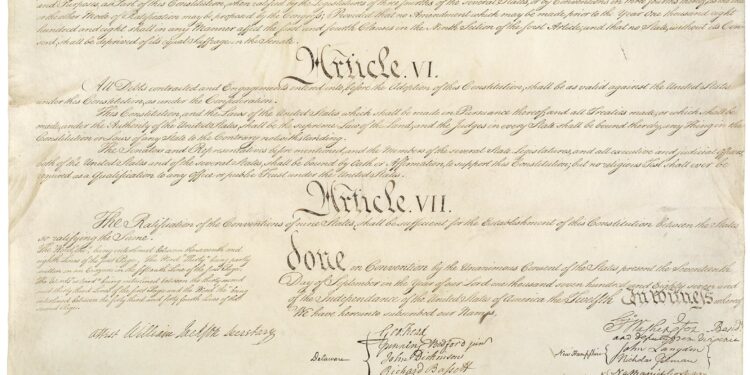 and Purposes, as Part of this Constitution, when ratified by the Legislatures of three fourths of the several States, or by Conventions in three fourths thereof, as the one
or the other Mode of Ratification may be proposed by the Congress; Provided that no Amendment which may be made prior to the Year One thousand eight
hundred and eight shall in any Manner affect the first and fourth Clauses in the Ninth Section of the first Article; and that no State, without its Con-
sent, shall be deprived of its equal Suffrage in the Senate.
Article. VI.
All Debts contracted and Engagements entered into, before the Adoption of this Constitution, shall be as valid against the United States
under this Constitution, as under the Confederation.
This Constitution, and the Laws of the United States which shall be made in Pursuance thereof; and all Treaties made, or which shall be
made, under the Authority of the United States, shall be the supreme Law of the Land; and the Judges in every State shall be bound thereby, any Thing in the
Constitution or Laws of any State to the Contrary notwithstanding.
The Senators and Representatives before mentioned, and the Members of the several State Legislatures, and all executive and judicial Officers,
both of the United States and of the several States, shall be bound by Oath or Affirmation, to support this Constitution; but no religious Test shall ever be
required as a Qualification to any Office or public Trust under the United States.
Article. VII.
The Ratification of the Conventions of nine States, shall be sufficient for the Establishment of this Constitution between the States
so ratifying the Same.
The Word, "the," being interlined between the seventh and
eighth Lines of the first Page, The Word "Thirty" being partly
written on an Erazure in the fifteenth Line of the first Page,
The Words "is tried" being interlined between the thirty second
and thirty third Lines of the first Page and the Word "the" being
interlined between the forty third and forty fourth Lines of the
second Page.
done in Convention by the Unanimous Consent of the States present the Seventeenth
Day of September in the Year of our Lord one thousand seven hundred and Eighty seven and
of the Independance of the United States of America the Twelfth In Witness whereof
We have hereunto subscribed our Names,
Attest William Jackson Secretary
Delaware
Geo: Read
Gunning Bedford jun
John Dickinson
Richard Bassett
Go: Washington Presidt
and deputy from Virginia
New Hampshire
John Langdon
Nicholas Gilman
Nathaniel Gorham